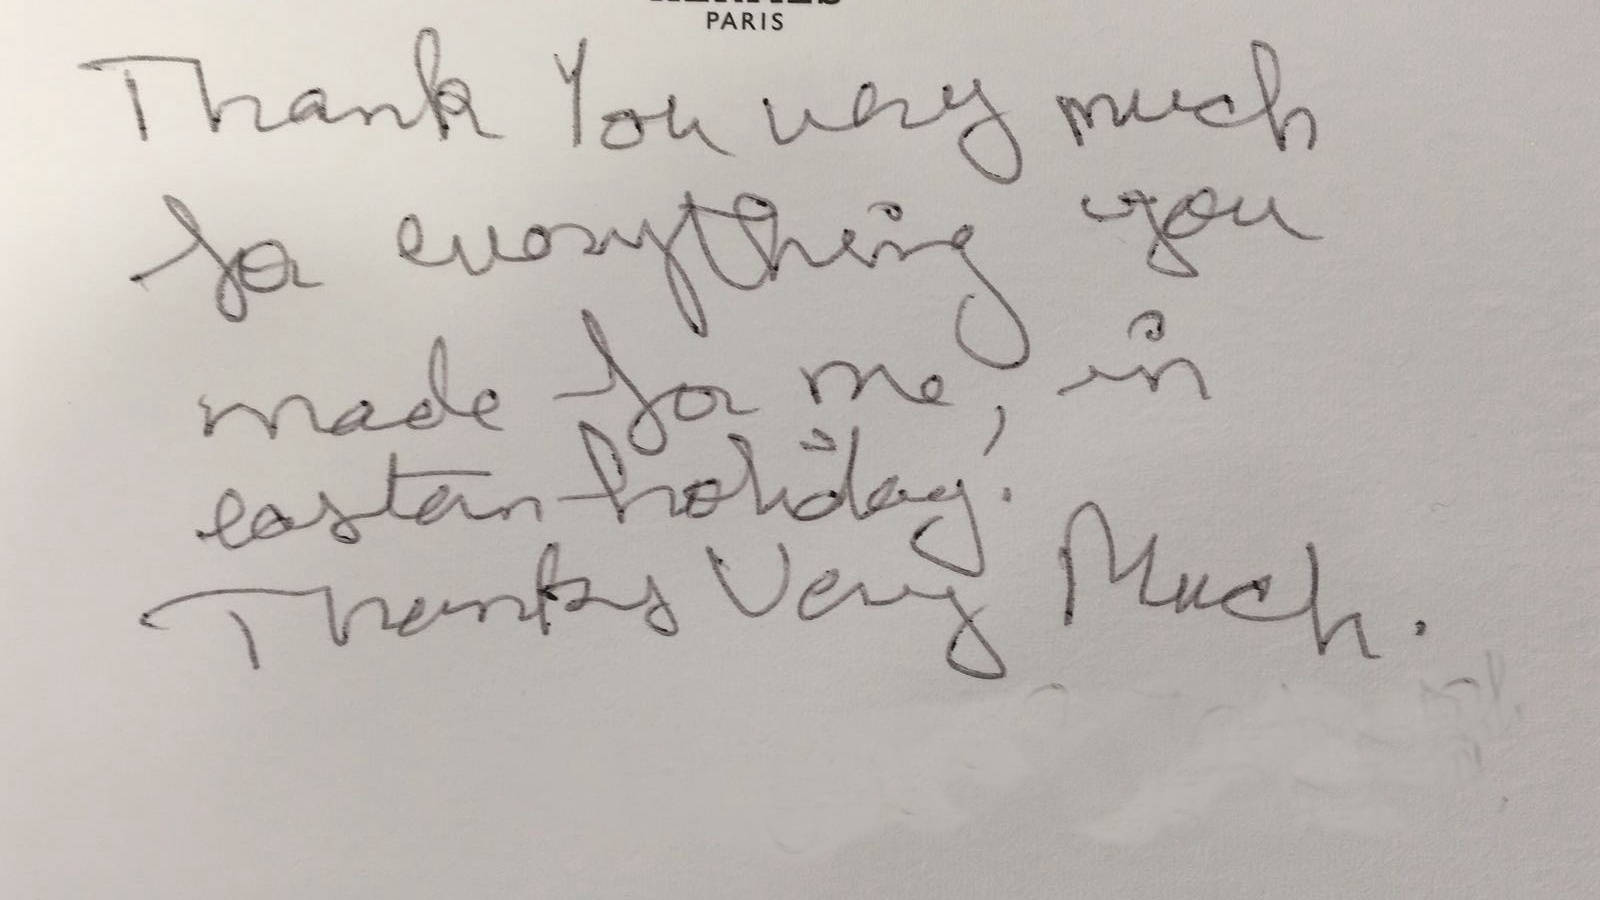 HERMES
PARIS
Thank You very much
for everything you
made for me, in
eastern holiday!
Thanks Very Much.